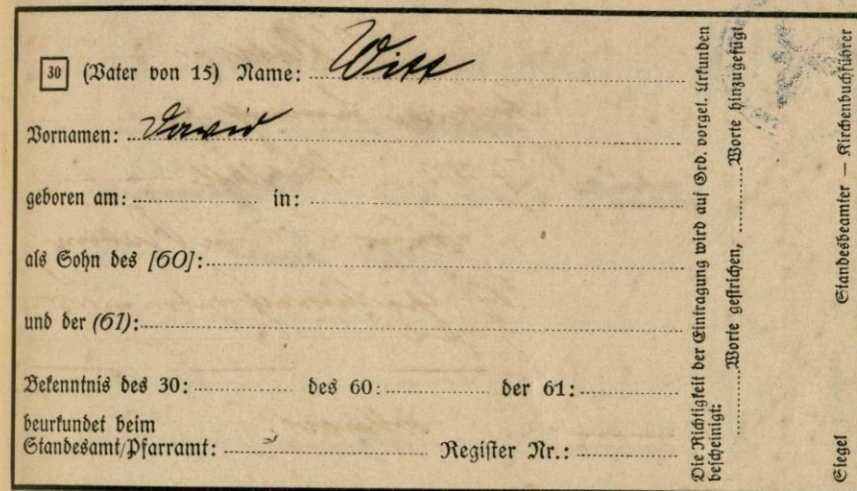 30 (Vater von 15) Name: Witt
Vornamen: David
geboren am: in:
als Sohn des [60]:
und der (61):
Bekenntnis des 30: des 60: der 61:
beurkundet beim
Standesamt/Pfarramt: Register Nr.:
Die Richtigkeit der Eintragung wird auf Grd. vorgel. Urkunden
bescheinigt: Worte gestrichen, Worte hinzugefügt
Siegel Standesbeamter — Kirchenbuchführer